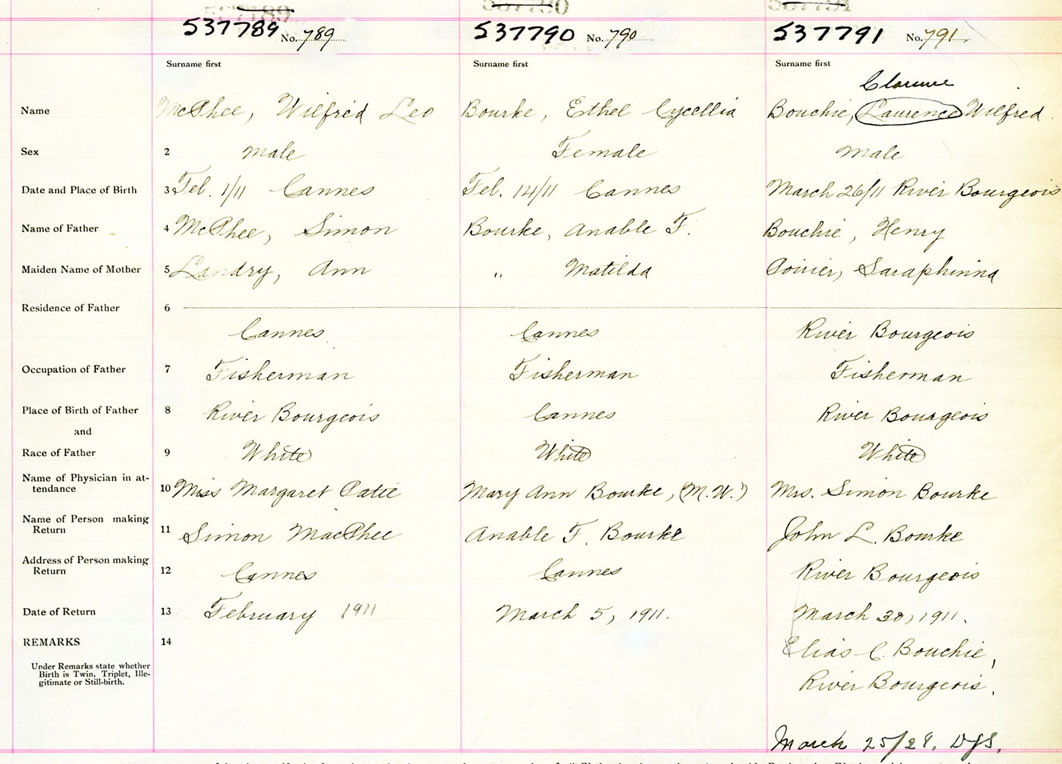 537789 No. 789 537790 No. 790 537791 No. 791
Surname first Surname first Surname first
Clarence
Name McPhee, Wilfred Leo Bourke, Ethel Cycellia Bouchie, Laurence Wilfred.
Sex 2 Male Female Male
Date and Place of Birth 3 Feb. 1/11 Cannes Feb. 14/11 Cannes March 26/11 River Bourgeois
Name of Father 4 McPhee, Simon Bourke, Anable F. Bouchie, Henry
Maiden Name of Mother 5 Landry, Ann " Matilda Poirier, Saraphinna
Residence of Father 6
Cannes. Cannes River Bourgeois
Occupation of Father 7 Fisherman Fisherman Fisherman
Place of Birth of Father 8 River Bourgeois Cannes River Bourgeois
and
Race of Father 9 White White White
Name of Physician in at-
tendance 10 Miss Margaret Patie Mary Ann Bourke, (M.W.) Mrs. Simon Bourke
Name of Person making
Return 11 Simon MacPhee Anable F. Bourke John L. Bourke
Address of Person making
Return 12 Cannes Cannes River Bourgeois
Date of Return 13 February 1911 March 5, 1911. March 30, 1911.
REMARKS 14
Elias C. Bouchie,
Under Remarks state whether
Birth is Twin, Triplet, Ille-
gitimate or Still-birth.
River Bourgeois.
March 25/28. DJS.